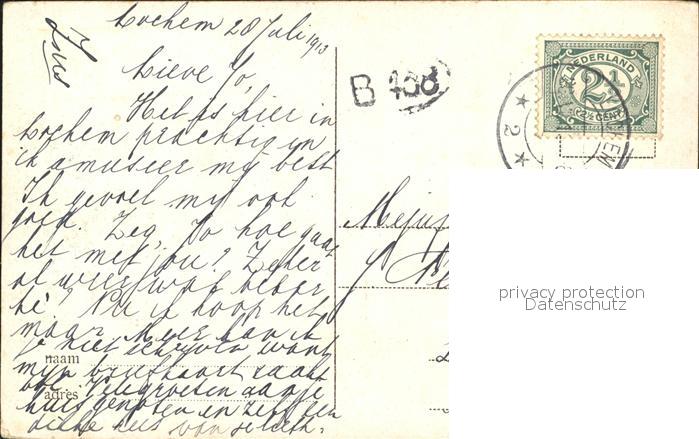 Lochem 28 Juli 1913
Lieve Jo,
Het is hier in
Lochem prachtig en
ik amuseer mij best
Ik gevoel mij ook
goed. Zeg, Jo hoe gaat
het met jou? Zeker
al weer wat beter
hè? Nu ik hoop het
maar. Meer kan ik
je niet schrijven want
naam
mijn briefkaart raakt
vol. Veel groeten aan je
adres
huisgenooten en
dikke kus van
B 468
NEDERLAND
2½
2½ CENT
2
privacy protection
Datenschutz